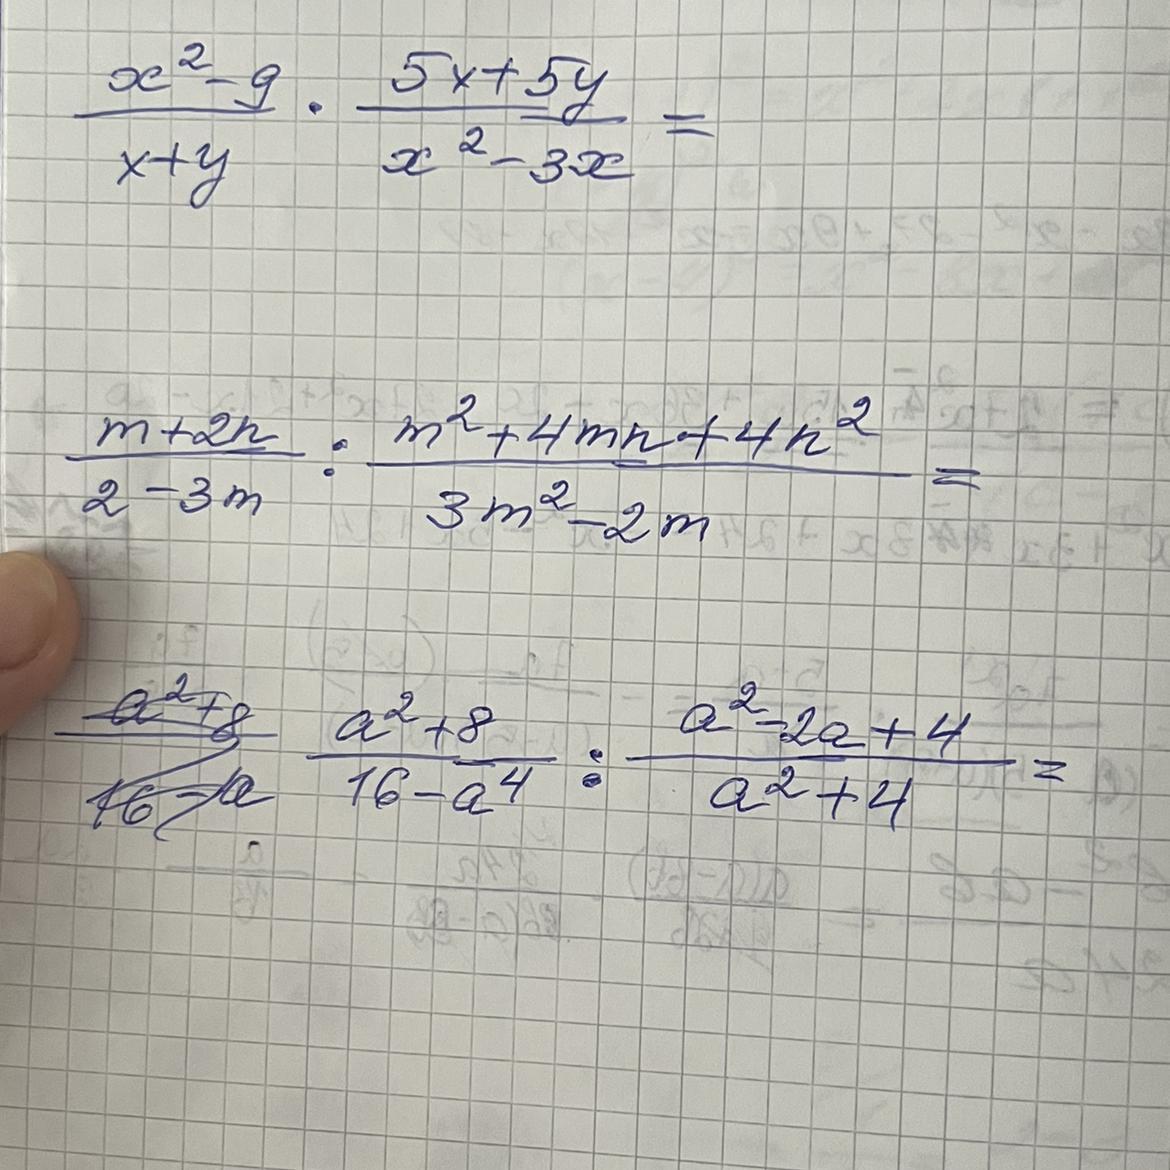 (x² - 9)/(x+y) · (5x+5y)/(x² - 3x) =
(m+2n)/(2-3m) : (m²+4mn+4n²)/(3m²-2m) =
(a²+8)/(16-a⁴) : (a²-2a+4)/(a²+4) =